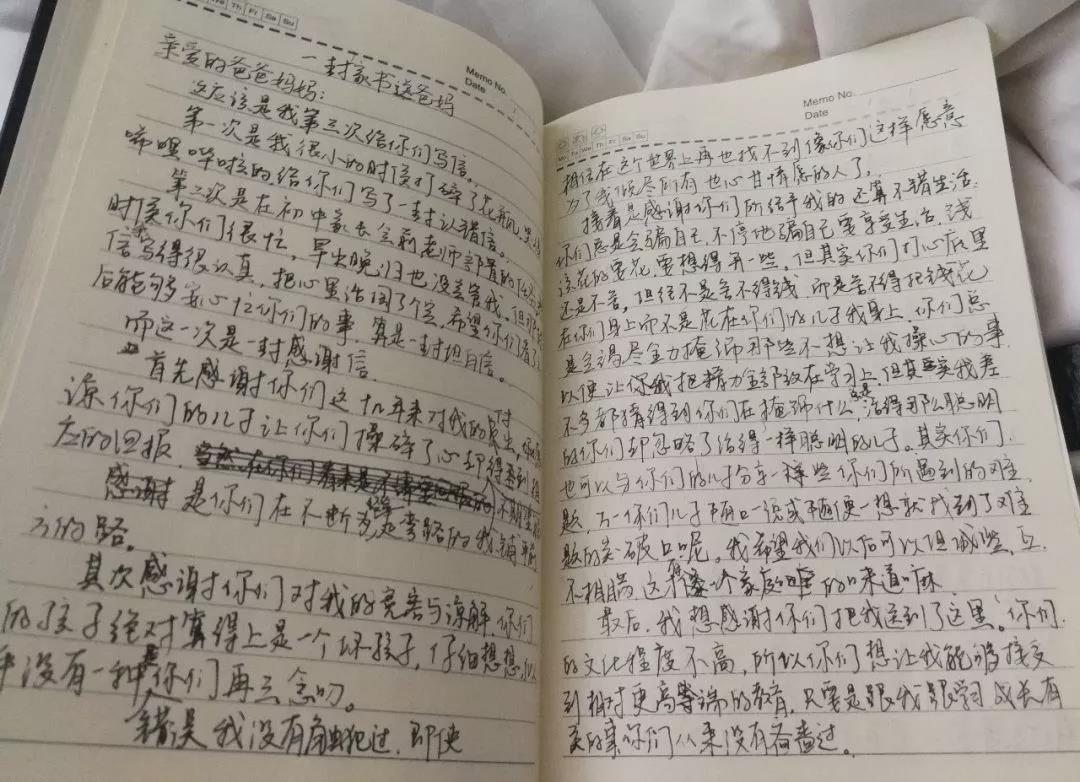 We Th Fr Sa Su
Memo No.
Date
一封家书送爸妈
亲爱的爸爸妈妈：
这应该是我第三次给你们写信。
第一次是我很小的时候打碎了花瓶,
唏哩哗啦的给你们写了一封认错信。
第二次是在初中家长会前老师布置的
时候你们很忙，早出晚归也没去管我,但
信写得很认真，把心里话阔了个空,希望你们看了
后能够安心忙你们的事，算是一封坦白信。
而这一次是一封感谢信.
首先感谢你们这十几年来对我的付出,
你们的儿子让你们操碎了心却得不到
应的回报.
感谢是你们在不断为总是走弯路的我铺
方的路。
其次感谢你们对我的宽容与谅解.你们
的孩子绝对算得上是一个坏孩子,仔细想想,以
没有一种是你们再三念叨。
错误我没有触犯过.即使
Memo No.
Date
Mo Tu We Th Fr Sa Su
相信在这个世界上再也找不到像你们这样愿意
为了我倾尽所有也心甘情愿的人了.
接着是感谢你们所给予我的还算不错生活.
你们总是会骗自己,不停地骗自己要享受生活.钱
该花的要花.要想得开一些，但其实你们打心底里
还是不舍，但往不是舍不得钱.而是舍不得把钱花
在你们身上而不是花在你们的儿子我身上.你们总
是会竭尽全力掩饰那些不想让我操心的事
以便让我把精力全部放在学习上,但其实我差
不多都猜得到你们在掩饰什么,活得那么聪明
的你们却忽略了活得一样聪明的儿子。其实你们.
也可以与你们的儿子分享一些你们所遇到的难
题,万一你们儿子随口一说或随便一想就找到了难
题的突破口呢。我希望我们以后可以坦诚些,互
不相瞒,这才像个家庭的味道嘛.
最后.我想感谢你们把我送到了这里。你们.
的文化程度不高,所以你们想让我能够接受
到相对更高等端的教育.只要是跟我跟学习成长有
关的事你们从来没有吝啬过。